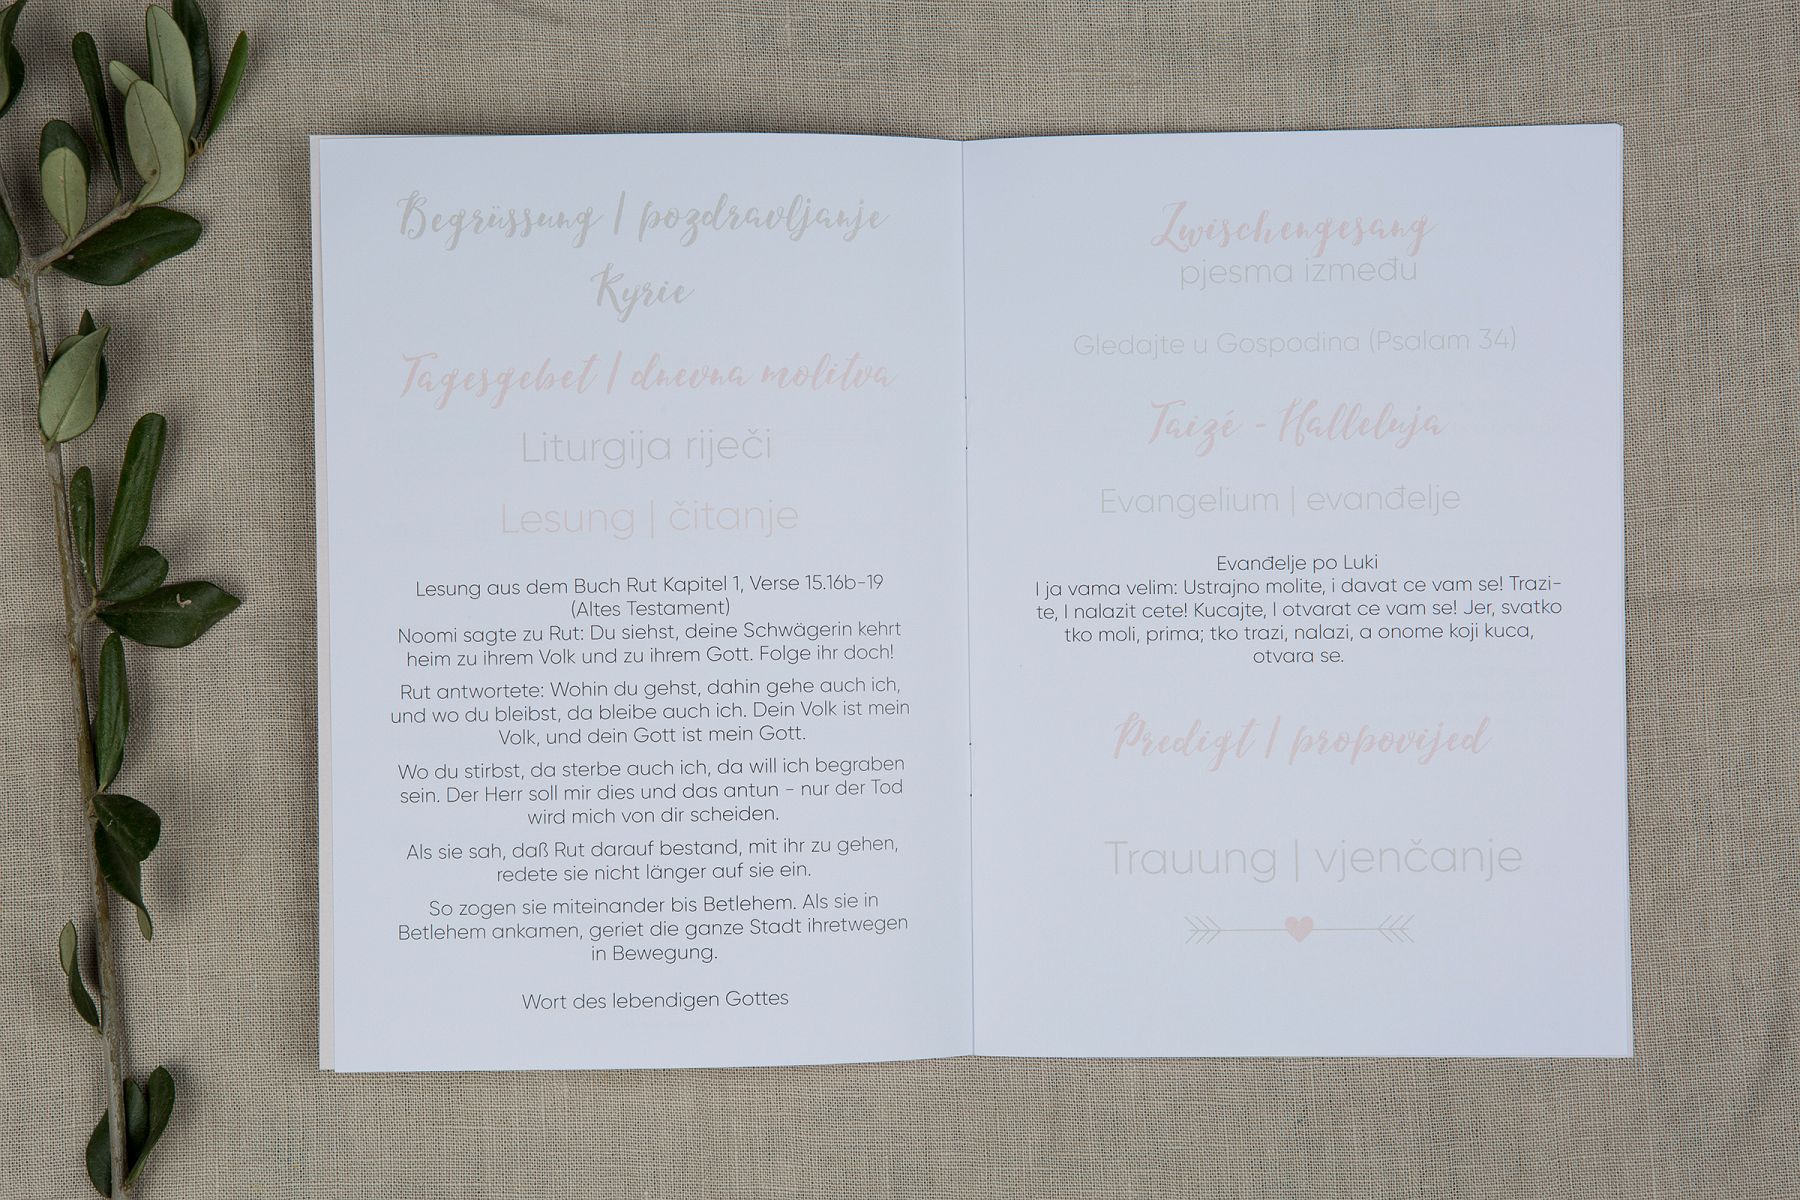 Begrüssung | pozdravljanje
Kyrie
Tagesgebet | dnevna molitva
Liturgija riječi
Lesung | čitanje
Lesung aus dem Buch Rut Kapitel 1, Verse 15.16b-19
(Altes Testament)
Noomi sagte zu Rut: Du siehst, deine Schwägerin kehrt
heim zu ihrem Volk und zu ihrem Gott. Folge ihr doch!
Rut antwortete: Wohin du gehst, dahin gehe auch ich,
und wo du bleibst, da bleibe auch ich. Dein Volk ist mein
Volk, und dein Gott ist mein Gott.
Wo du stirbst, da sterbe auch ich, da will ich begraben
sein. Der Herr soll mir dies und das antun - nur der Tod
wird mich von dir scheiden.
Als sie sah, daß Rut darauf bestand, mit ihr zu gehen,
redete sie nicht länger auf sie ein.
So zogen sie miteinander bis Betlehem. Als sie in
Betlehem ankamen, geriet die ganze Stadt ihretwegen
in Bewegung.
Wort des lebendigen Gottes
Zwischengesang
pjesma između
Gledajte u Gospodina (Psalam 34)
Taizé - Halleluja
Evangelium | evanđelje
Evanđelje po Luki
I ja vama velim: Ustrajno molite, i davat ce vam se! Trazi-
te, I nalazit cete! Kucajte, I otvarat ce vam se! Jer, svatko
tko moli, prima; tko trazi, nalazi, a onome koji kuca,
otvara se.
Predigt | propovijed
Trauung | vjenčanje